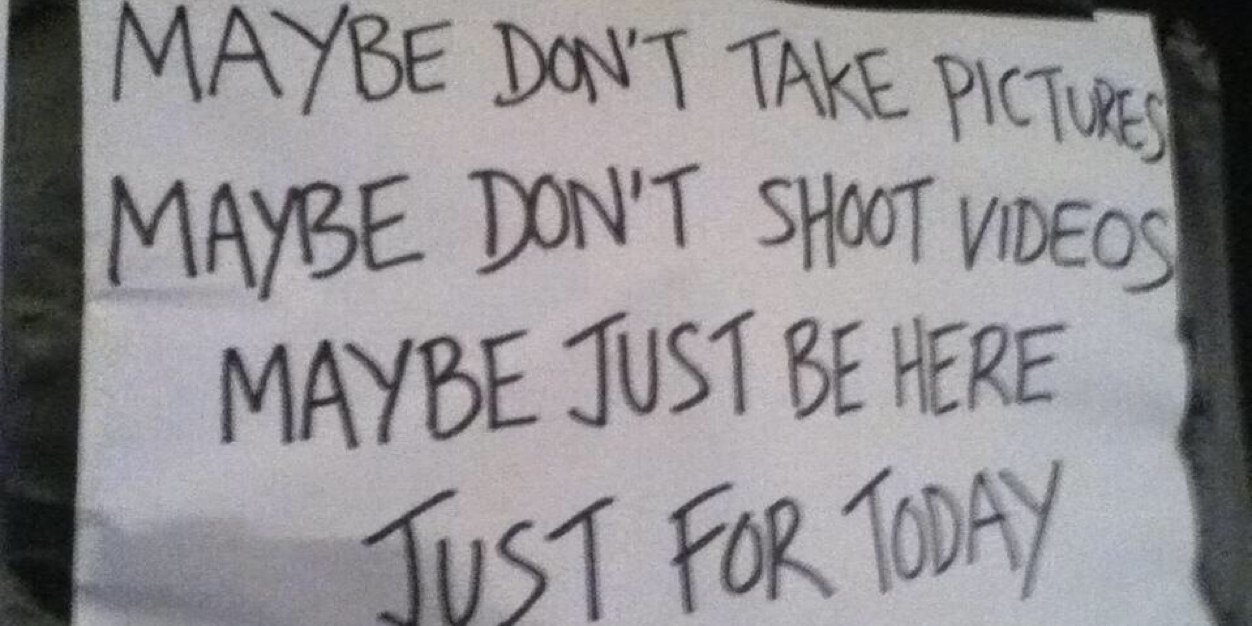 MAYBE DON'T TAKE PICTURES
MAYBE DON'T SHOOT VIDEOS
MAYBE JUST BE HERE
JUST FOR TODAY